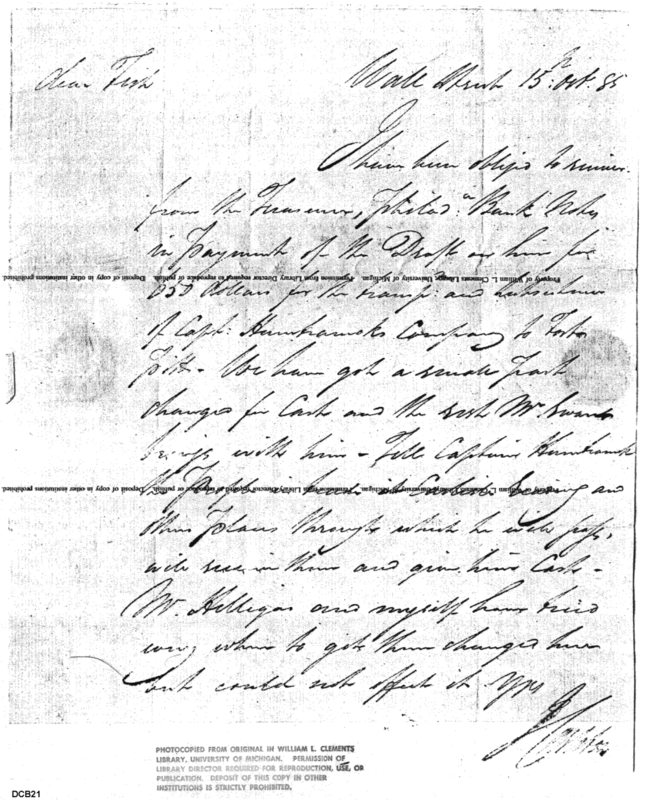 dear Fish Wall Street 15th. Oct. 85
I have been obliged to receive
from the Treasurer, Philada. Bank Notes
in Payment of the Draft on him for
Property of William L. Clements Library, University of Michigan. Permission from Library Director required to reproduce or publish. Deposit of copy in other institutions prohibited.
650 dollars for the transpn. and subsistence
of Capt: Hamtramcks Company to Forts
Pitt - We have got a small part
changed for Cash and the rest Mr. Swans
brings with him - Tell Captain Hamtramck
Property of William L. Clements Library, University of Michigan. Permission from Library Director required to reproduce or publish. Deposit of copy in other institutions prohibited.
the and
Places through which he will pass,
will receive them and give him Cash -
Mr. Hilligas and myself have tried
every where to get them changed here
but could not effect it Yrs
PHOTOCOPIED FROM ORIGINAL IN WILLIAM L. CLEMENTS
LIBRARY, UNIVERSITY OF MICHIGAN. PERMISSION OF
LIBRARY DIRECTOR REQUIRED FOR REPRODUCTION, USE, OR
PUBLICATION. DEPOSIT OF THIS COPY IN OTHER
INSTITUTIONS IS STRICTLY PROHIBITED.
DCB21